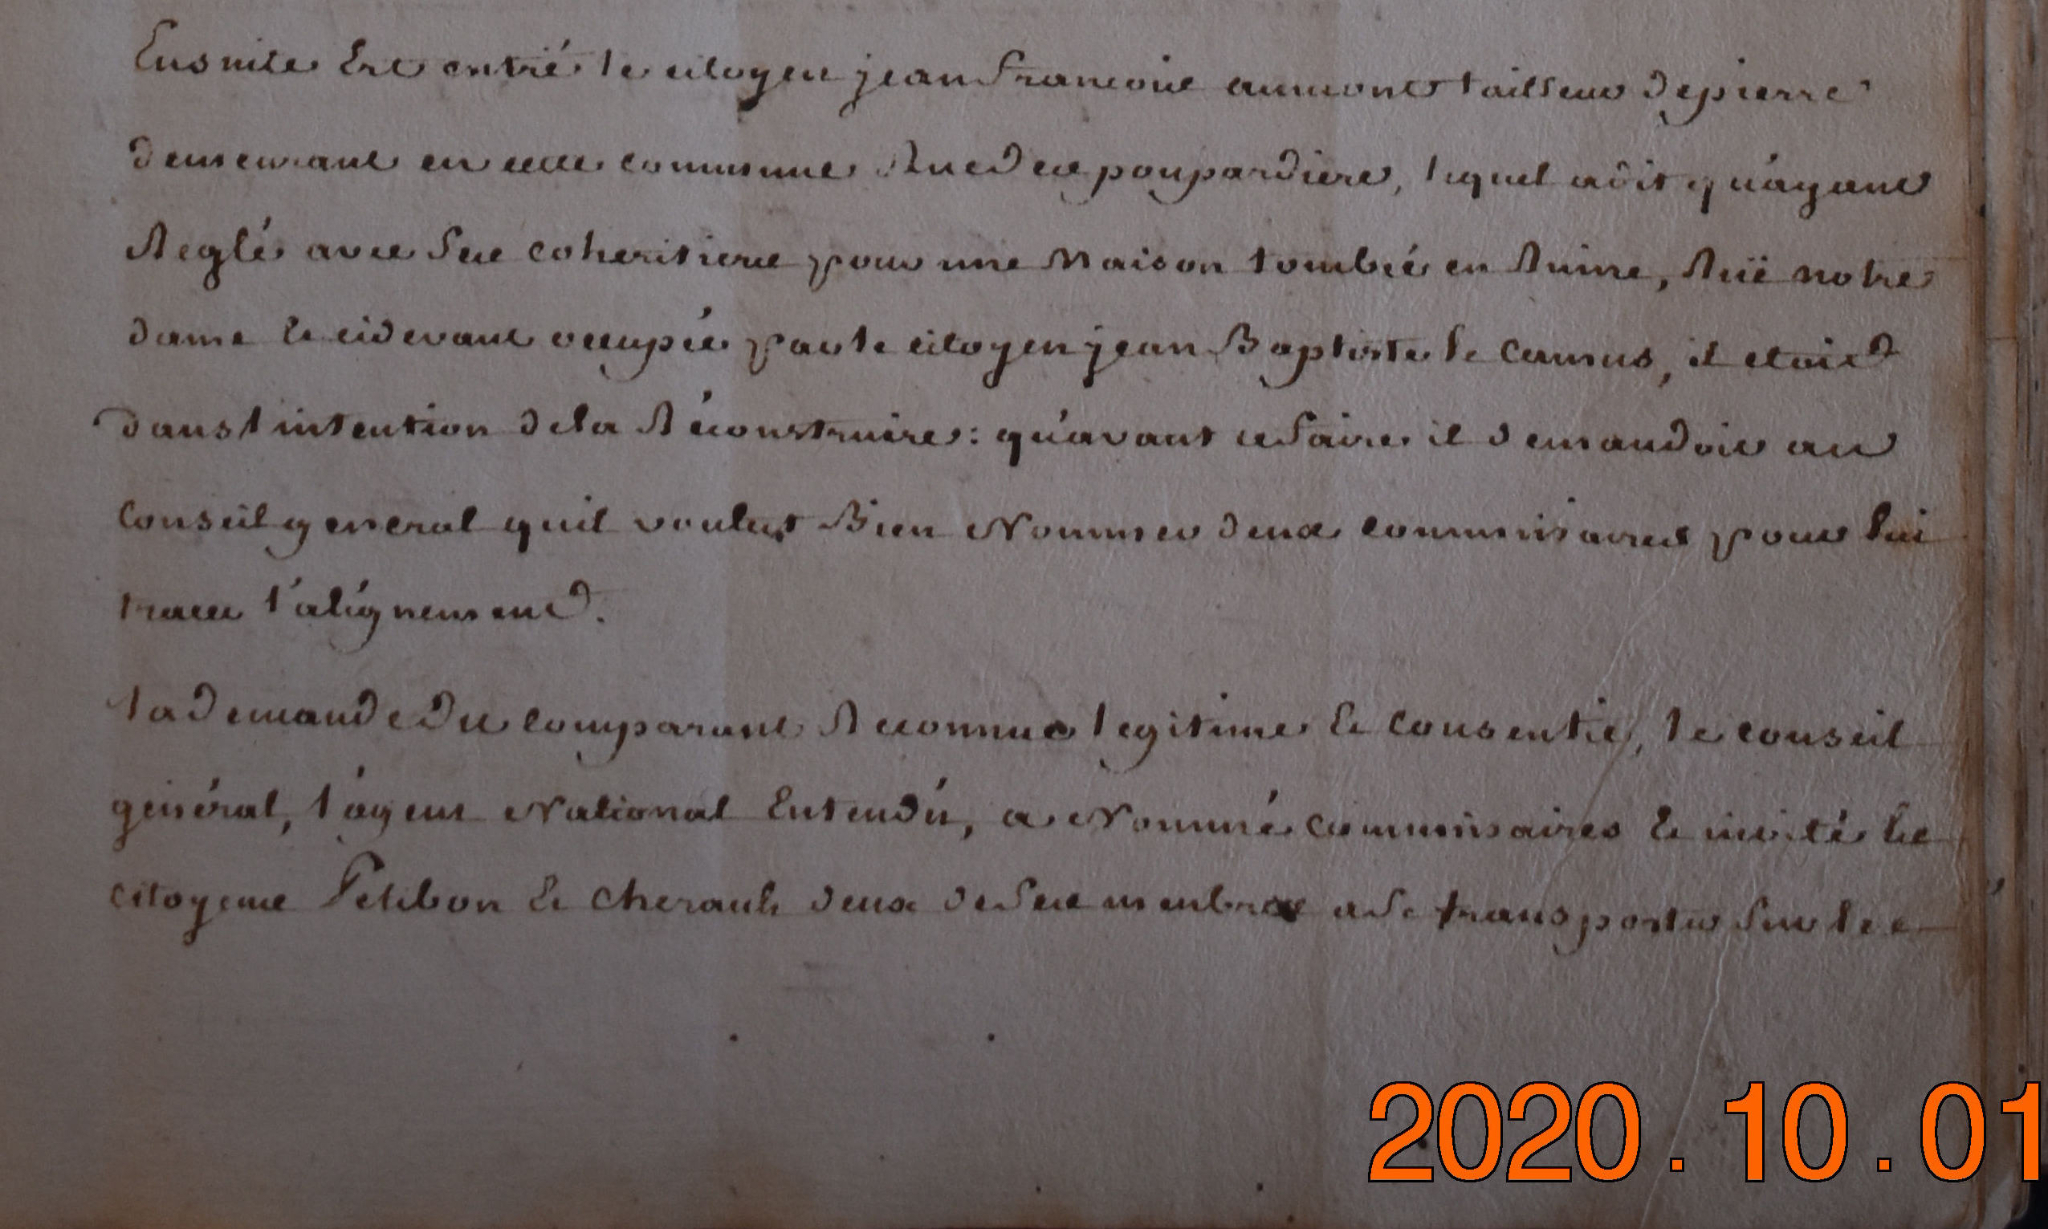 Ensuite Est entré le citoyen jean francois aumont tailleur de pierre
demeurant en cette commune Rue des poupardieres, lequel a dit qu'ayant
Reglé avec ses coheritiers pour une Maison tombée en Ruine, Ruë notre
dame & cidevant occupée par le citoyen jean Baptiste le camus, il etoit
dans l'intention de la Réconstruire : qu'avant ce faire il demandoit au
Conseil general quil voulut Bien Nommer deux commissaires pour lui
tracer l'alignement.
la demande du comparant Reconnue legitime & consentie, le conseil
général, l'agent National Entendû, a Nommé commissaires & invité les
citoyens Petibon & cherault deux de ses membres a se transporter sur les
2020.10.01